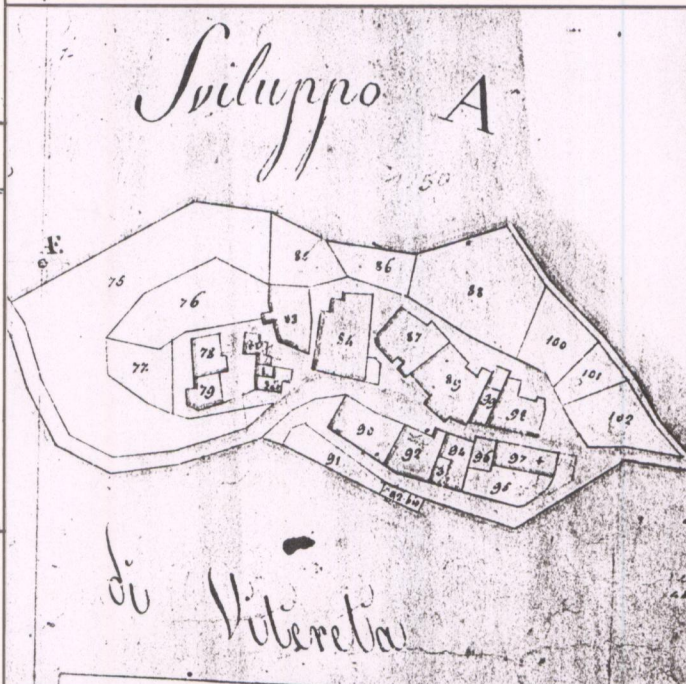 Sviluppo A
50
75
76
77
78
79
83
84
85
86
87
88
89
90
91
92
94
95
96
97 +
98
100
101
102
di Vitereta